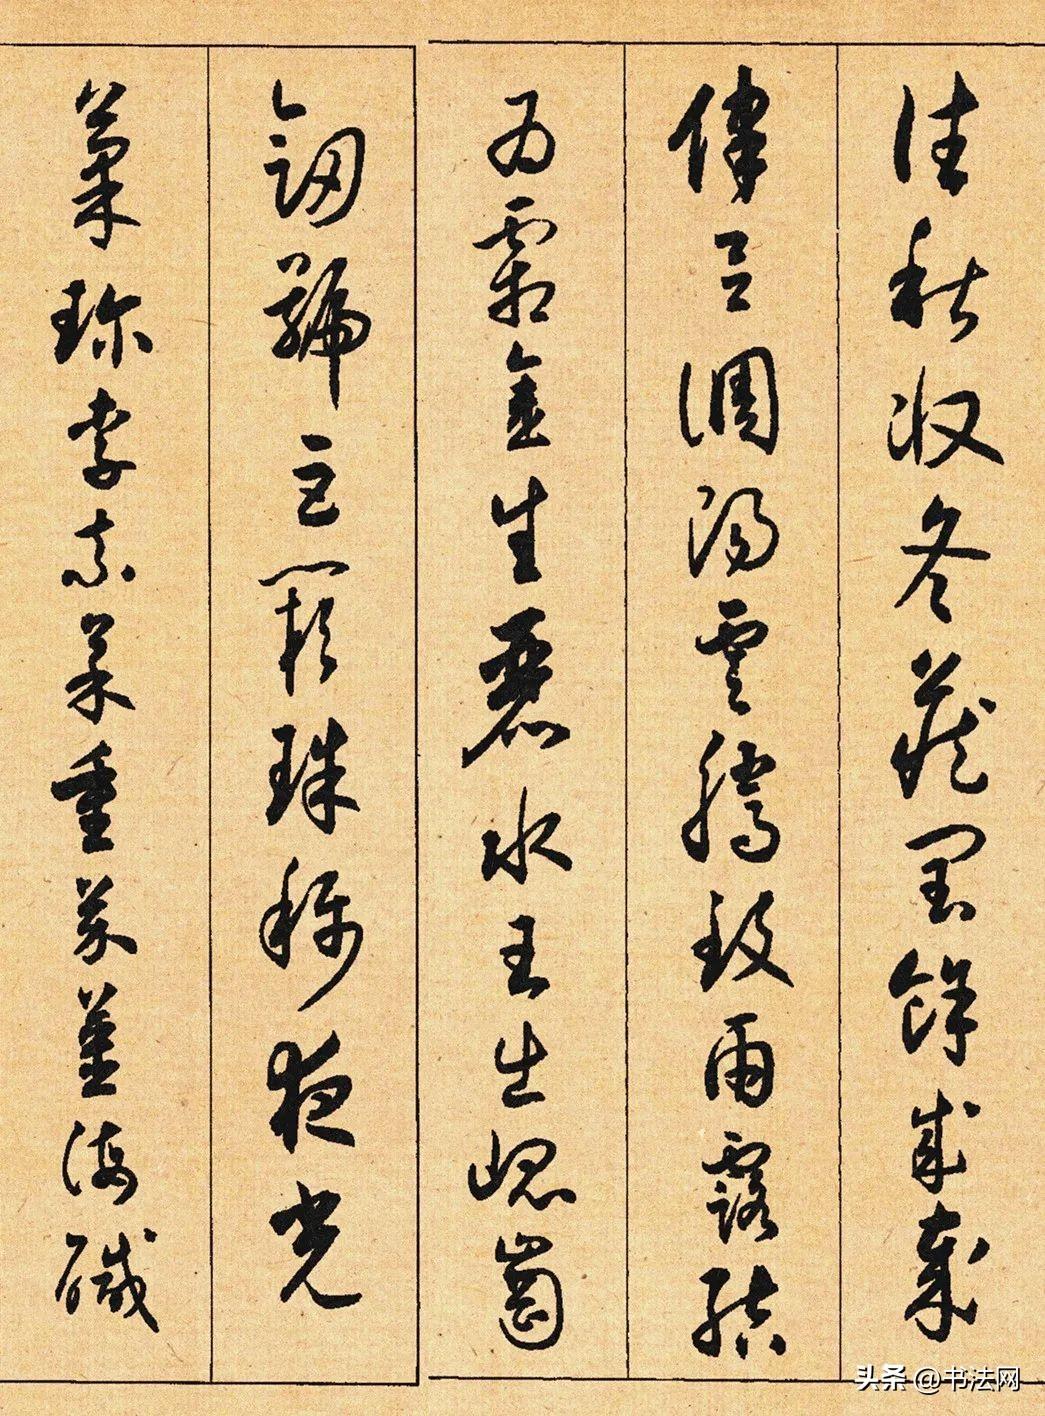 往秋收冬藏閏餘成歲
律呂調陽雲騰致雨露結
為霜金生麗水玉出崐崗
劒號巨闕珠稱夜光
菓珍李柰菜重芥薑海鹹
头条 @书法网